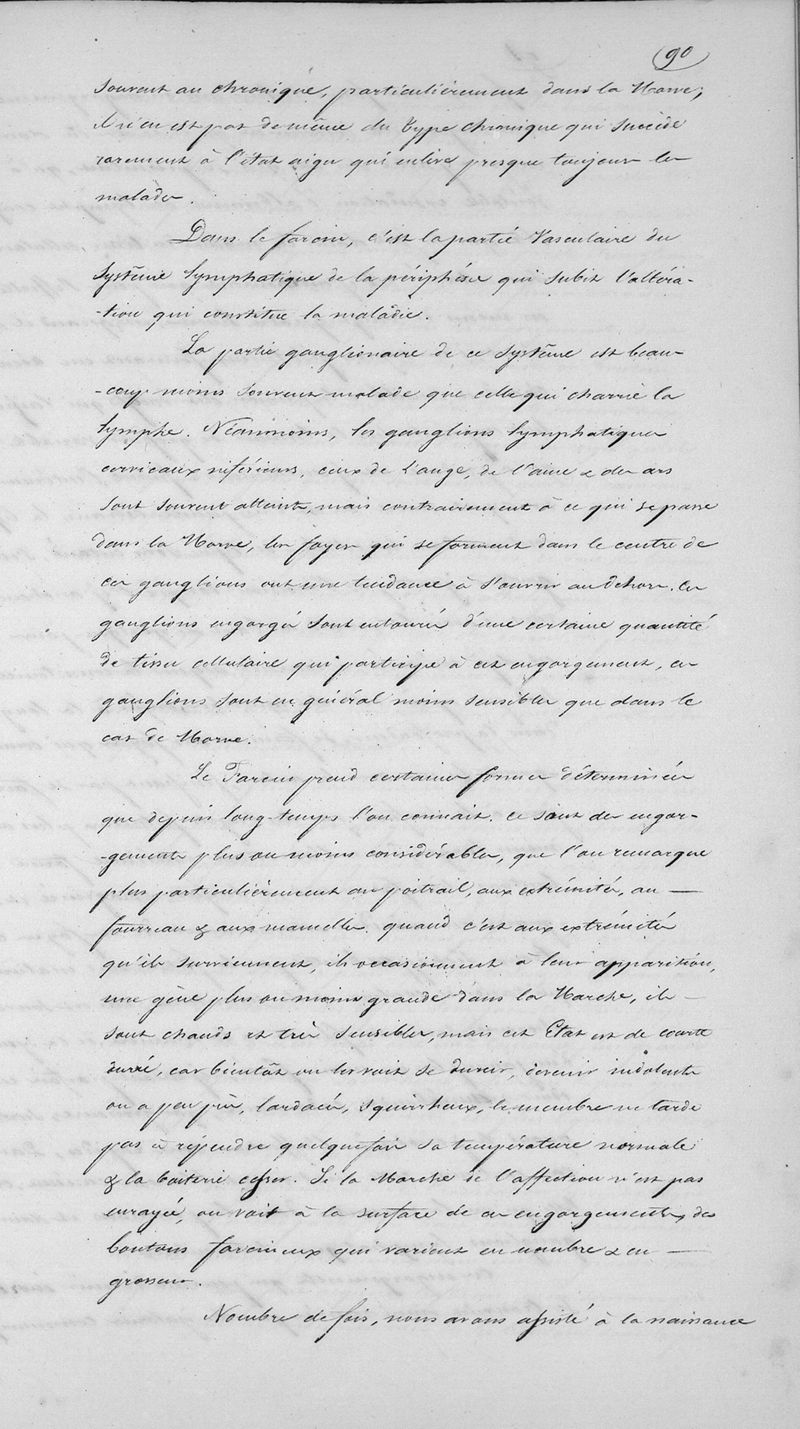 90
souvent au chronique, particulièrement dans la Morve;
il n'en est pas de même du type chronique qui succède
rarement à l'état aigu qui enlève presque toujours les
malades.
Dans le farcin, c'est la partie Vasculaire du
Système Lymphatique de la périphérie qui subit l'altéra-
-tion qui constitue la maladie.
La partie ganglionaire de ce Système est beau-
-coup moins souvent malade que celle qui charrie la
lymphe. Néanmoins, les ganglions lymphatiques
cervicaux inférieurs, ceux de l'auge, de l'aine & des ars
sont souvent atteints, mais contrairement à ce qui se passe
dans la Morve, les foyers qui se forment dans le centre de
ces ganglions ont une tendance à s'ouvrir au dehors. Ces
ganglions engorgés sont entourés d'une certaine quantité
de tissu cellulaire qui participe à cet engorgement, ces
ganglions sont en général moins sensibles que dans le
cas de Morve.
Le Farcin prend certaines formes déterminées
que depuis long-temps l'on connait. Ce sont des engor-
-gements plus ou moins considérables, que l'on remarque
plus particulièrement au poitrail, aux extrémités, au —
fourreau & aux mamelles. quand c'est aux extrémités
qu'ils surviennent, ils occasionnent à leur apparition,
une gêne plus ou moins grande dans la Marche, ils —
sont chauds et très sensibles, mais cet Etat est de courte
durée, car bientôt on les voit se durcir, devenir indolents
ou a peu près, lardacés, squirrheux, le membre ne tarde
pas à reprendre quelquefois sa température normale
& la boiterie cesser. Si la Marche de l'affection n'est pas
enrayée, on voit à la surface de ces engorgements, des
boutons farcineux qui varient en nombre & en —
grosseur.
Nombre de fois, nous avons assisté à la naissance